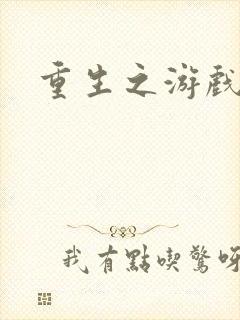 重生之游戲
我有點喫驚呀